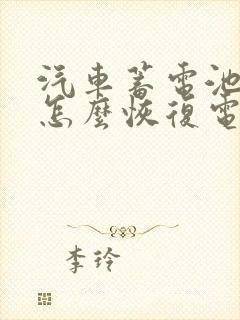 汽車蓄電池
怎麼恢復電
李玲